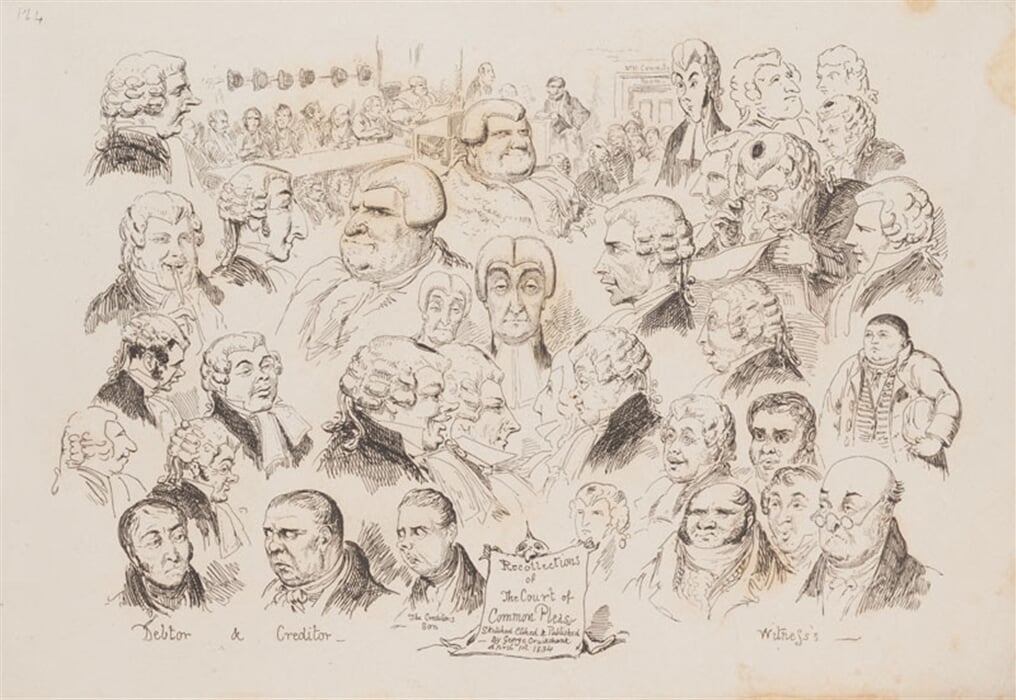 124
Recollections
of
The Court of
Common Pleas
Sketched Etched & Published
By George Cruikshank
1st 1834
Debtor & Creditor –
The Creditors
Son
Witness's –